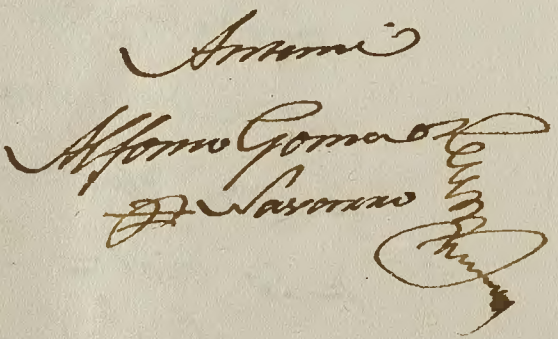 Antemi
Alfonso Gomez
de Navarro